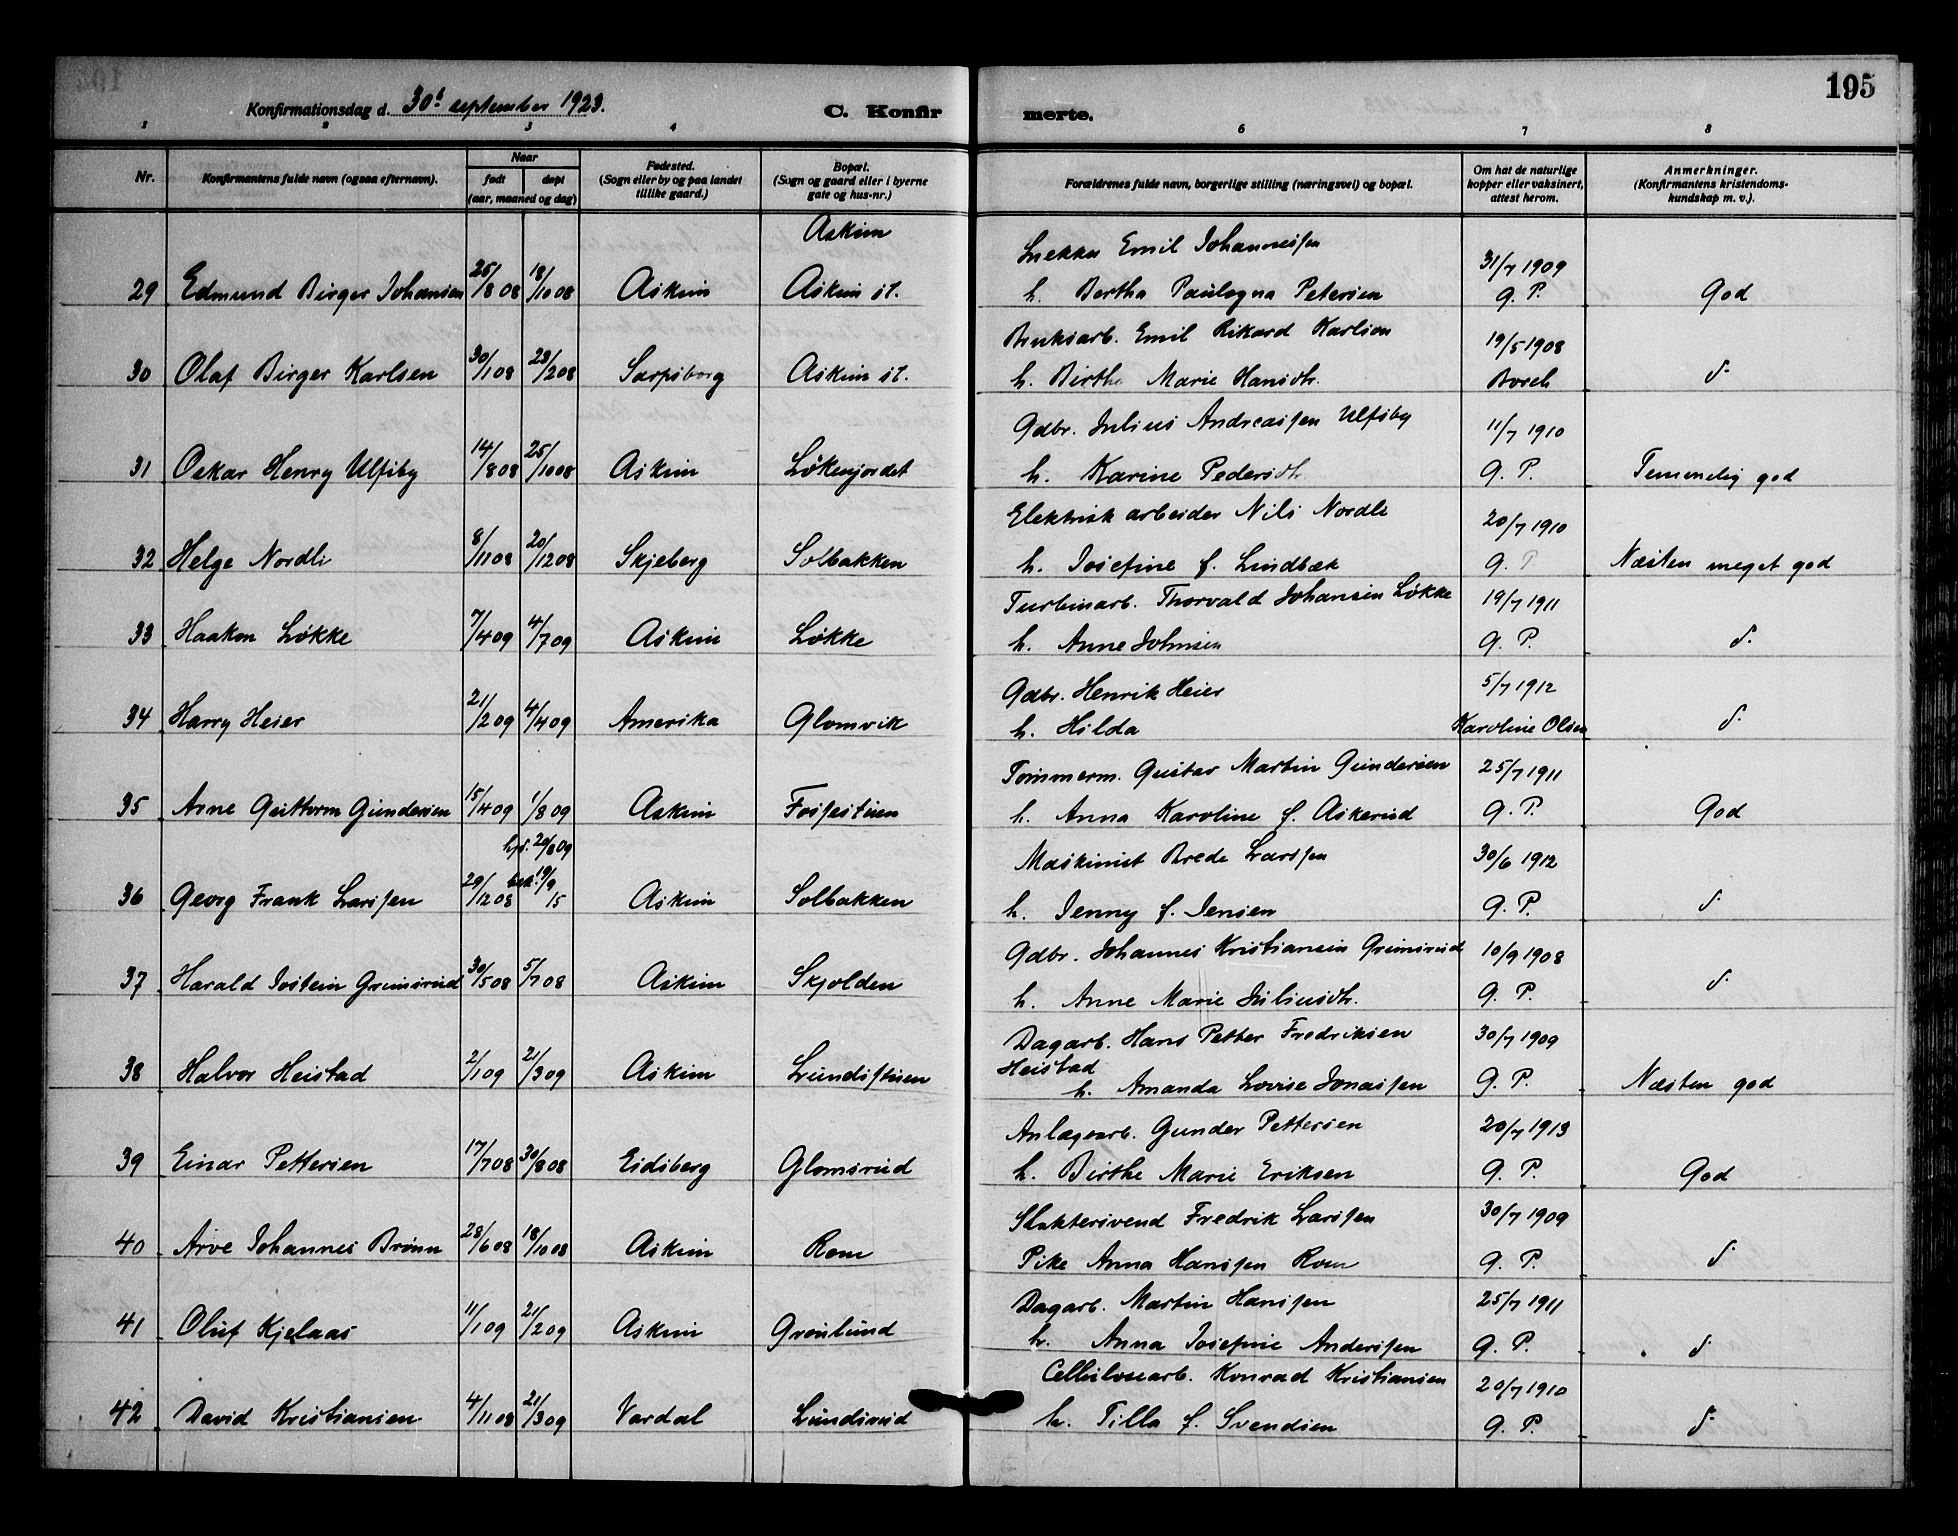 195
Konfirmationsdag d. 30te september 1923.
C. Konfir merte.
1 2 3 4 6 7 8
Nr.
Konfirmantens fulde navn (ogsaa efternavn).
Naar
født
døpt
(aar, maaned og dag)
Fødested.
(Sogn eller by og paa landet
tillike gaard.)
Bopæl.
(Sogn og gaard eller i byerne
gate og hus-nr.)
Forældrenes fulde navn, borgerlige stilling (næringsvei) og bopæl.
Om hat de naturlige
kopper eller vaksinert,
attest herom.
Anmerkninger.
(Konfirmantens kristendoms-
kundskap m. v.).
Askim
Snekker Emil Johannessen 31/7 1909
29 Edmund Birger Johansen 25/8 08 18/10 08 Askim Askim st. h. Bertha Paulogna Petersen G. P. God
Bruksarb. Emil Rikard Karlsen 19/5 1908
30 Olaf Birger Karlsen 30/1 08 23/2 08 Sarpsborg Askim st. h. Birthe Marie Hansdtr. Borch d.
Gdbr. Julius Andreassen Ulfsby 11/7 1910
31 Oskar Henry Ulfsby 14/8 08 25/10 08 Askim Løkenjordet h. Karine Pedersdtr. G. P. Temmelig god
Elektrisk arbeider Nils Nordli 20/7 1910
32 Helge Nordli 8/11 08 20/12 08 Skjeberg Solbakken h. Josefine f. Lindbæk G. P. Næsten meget god
Turbinarb. Thorvald Johansen Løkke 19/7 1911
33 Haakon Løkke 7/4 09 4/7 09 Askim Løkke h. Anne Johnsen G. P. d.
Gdbr. Henrik Heier 5/7 1912
34 Harry Heier 21/2 09 4/4 09 Amerika Glomvik h. Hilda Karoline Olsen d.
Tømmerm. Gustav Martin Gundersen 25/7 1911
35 Arne Guttorm Gundersen 15/4 09 1/8 09 Askim Fossestuen h. Anna Karoline f. Askerud G. P. God
hjd. 20/8 09
Maskinist Brede Larssen 30/6 1912
36 Georg Frank Larssen 29/12 08 bek. 19/9 15 Askim Solbakken h. Jenny f. Jensen G. P. d.
Gdbr. Johannes Kristiansen Grimsrud 10/9 1908
37 Harald Jostein Grimsrud 30/5 08 5/7 08 Askim Skjolden h. Anne Marie Juliusdtr. G. P. d.
Dagarb. Hans Petter Fredriksen 30/7 1909
Heistad
38 Halvor Heistad 2/1 09 21/3 09 Askim Lundsstuen h. Amanda Lovise Jonassen G. P. Næsten god
Anlægsarb. Gunder Pettersen 20/7 1913
39 Einar Pettersen 17/7 08 30/8 08 Eidsberg Glomsrud h. Birthe Marie Eriksen G. P. God
Slaktersvend Fredrik Larssen 30/7 1909
40 Arve Johannes Brønn 28/6 08 18/10 08 Askim Rom Pike Anna Hanssen Rom G. P. d.
Dagarb. Martin Hanssen 25/7 1911
41 Oluf Kjelaas 11/1 09 21/2 09 Askim Grønlund h. Anna Josefine Anderssen G. P. d.
Cellulosearb. Konrad Kristiansen 20/7 1910
42 David Kristiansen 4/11 08 21/3 09 Vardal Lundsrud h. Tilla f. Svendsen G. P. d.